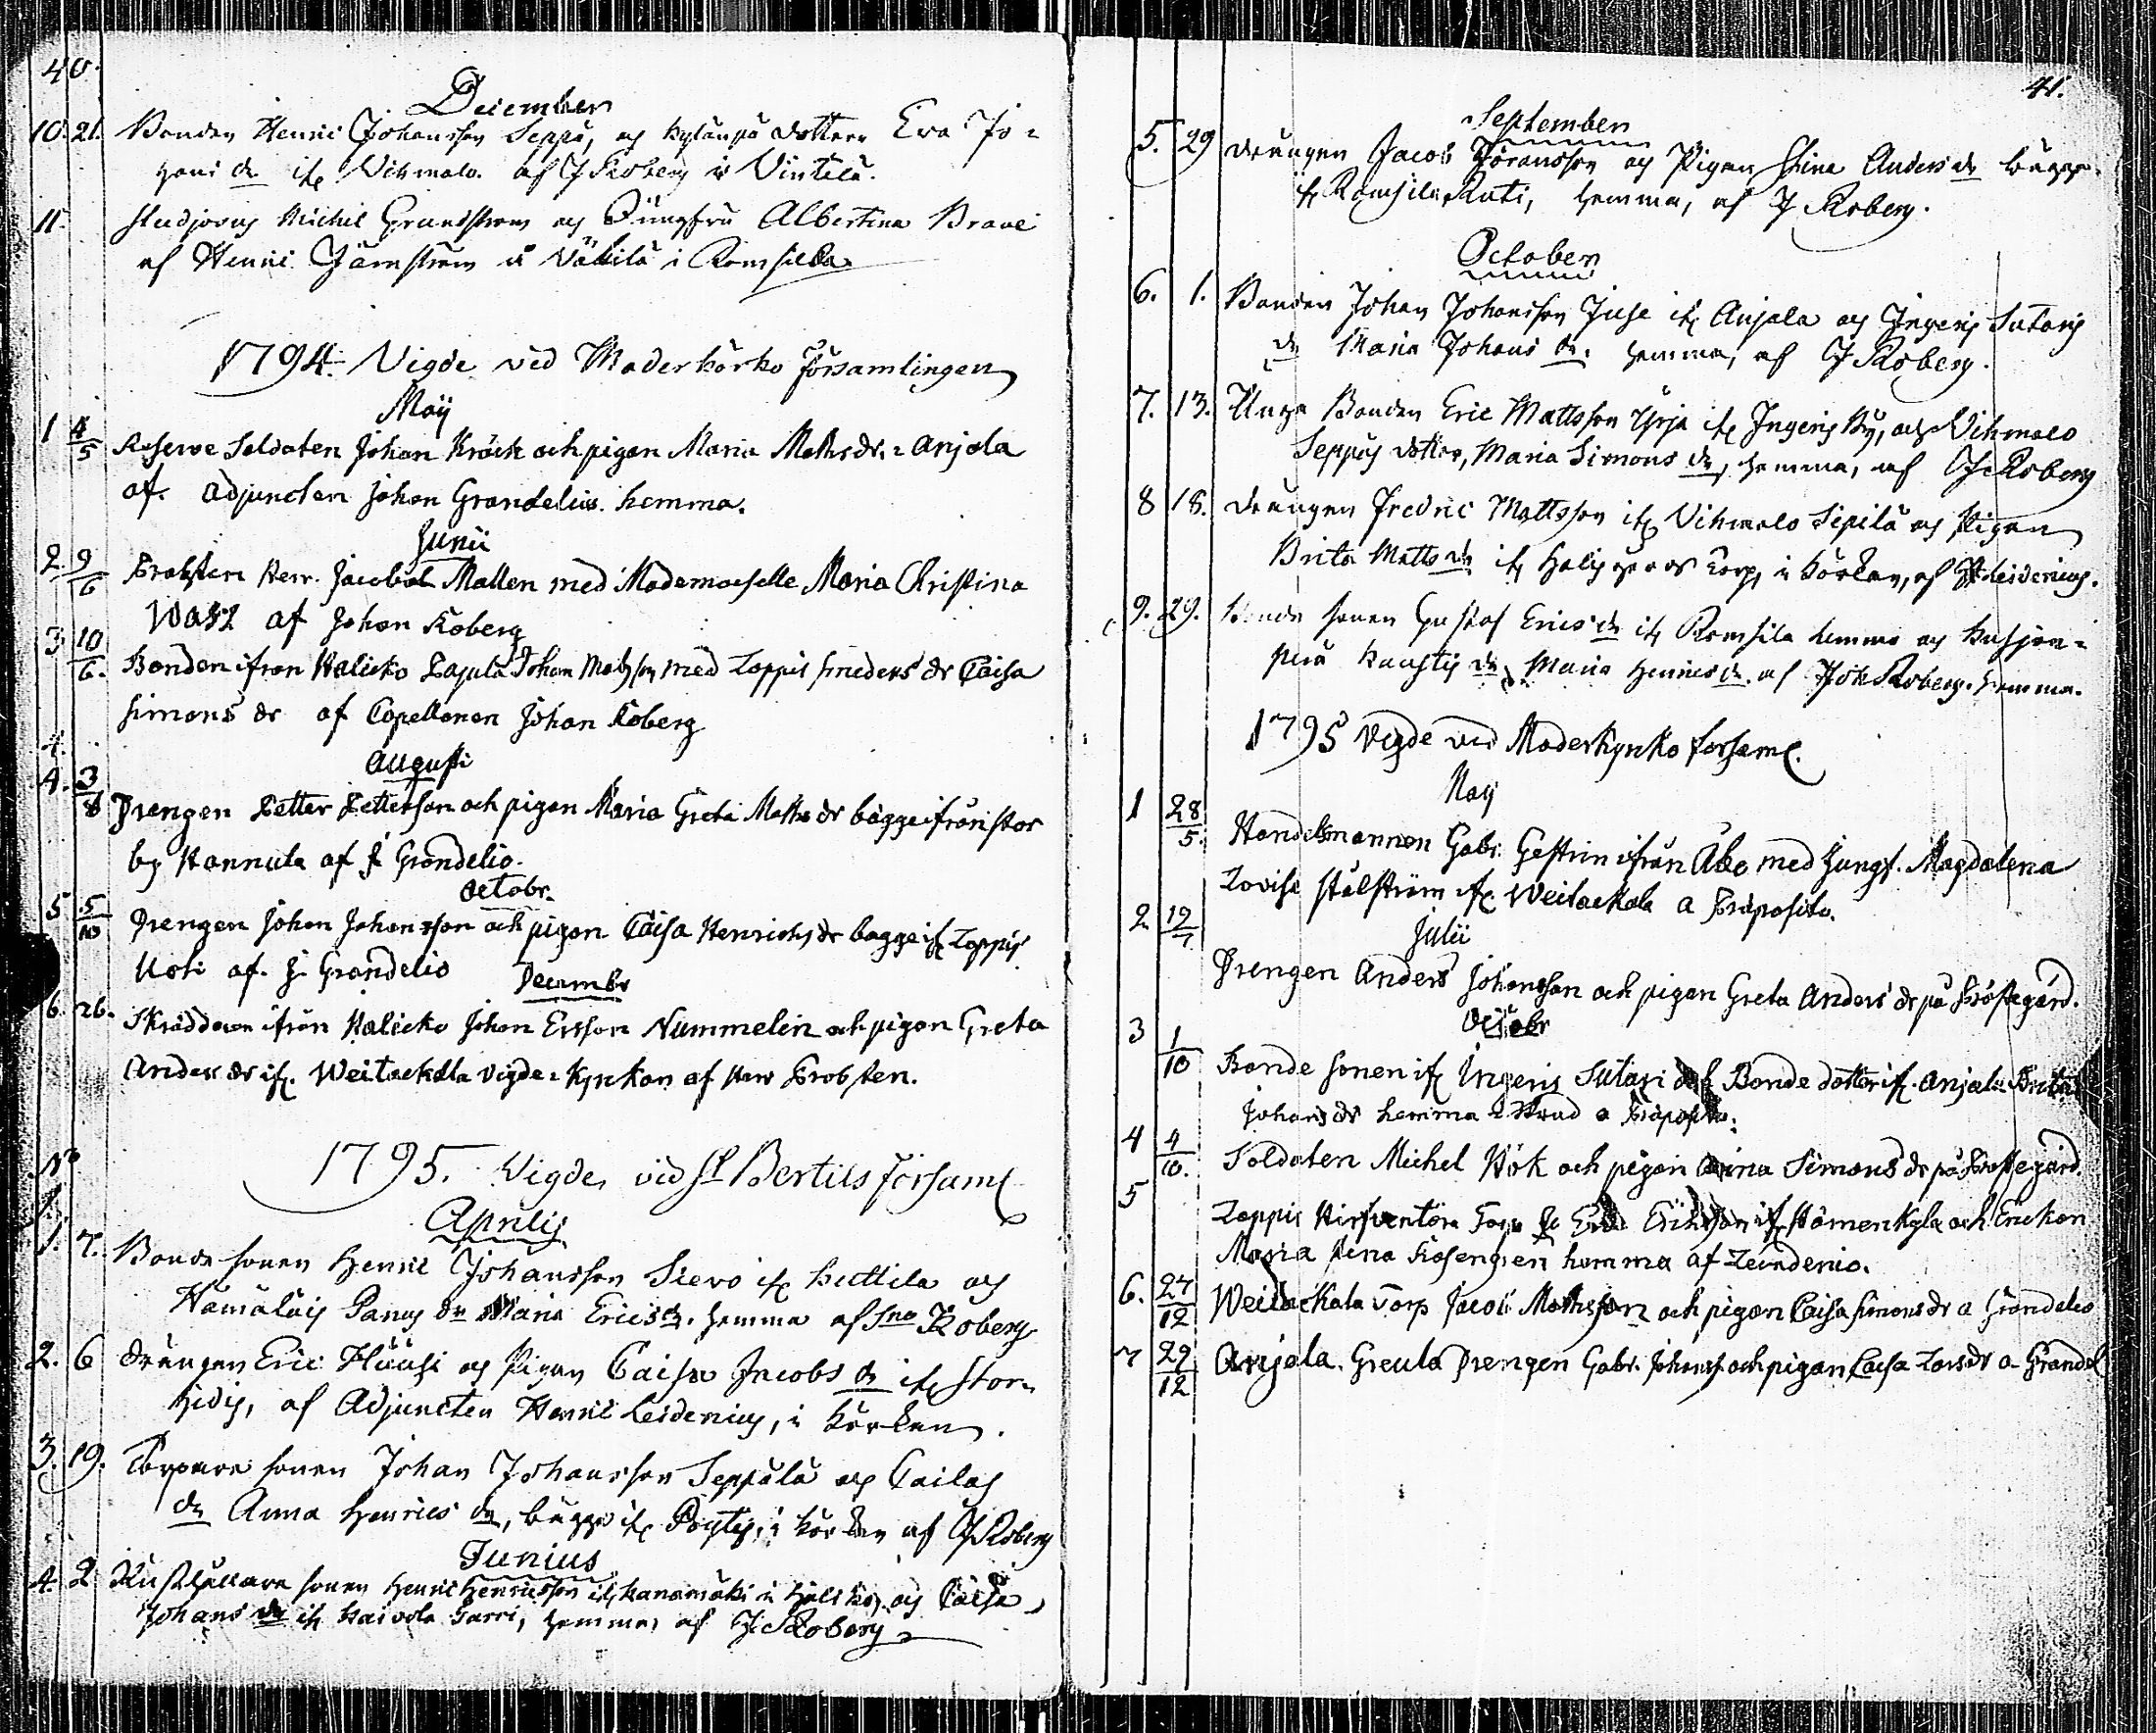 40.
December
10. 21. Bonden Henric Johansson Seppä, och Kylänpä dottern Eva Jo=
hans dr ifr Vihmalo. af J Roberg i Vintelä.
11. Michel Grundstrom och Jungfru Albertina Brave
af Henric Järnström å Wäkilä i Romsila
1794. Vigde ved Moderkörko församlingen
Maij
1 4/5 Reserve Soldaten Johan Kröck och pigan Maria Mathsdr. i Anjola
af. Adjuncten Johan Grandelius. hemma.
Junii
2. 9/6 Probsten Herr. Jacobat Mallen med Mademoiselle Maria Christina
Wasz af Johan Roberg
3 10/6. Bonden ifrån Halicko Pajula Johan Matsson med Loppis smedens dr Caisa
Simons dr af Capellanen Johan Roberg
4.
Augusti
4. 3/8 Drengen Petter Pettersson och pigan Maria Greta Maths dr bägge ifrån stor
by Hannula af J Grandelio.
Octobr.
5 5/10 Drengen Johan Johansson och pigan Caisa Henrichs dr bägge if Loppis
Uoti af. J. Grandelio
Decembr
6. 26. Skräddaren ifrån Halicko Johan Ersson Nummelin och pigan Greta
Anders dr if. Weitackala vigde i Kyrkan af Herr Probsten.
1795. Vigde vid St Bertils församl
No
1.
Aprilis
1. 7. Bonde sonen Henric Johansson Sievo if Kuttila och
Hämäläis Panus dr Maria Erics dr. hemma af Jno Roberg
2. 6 Drängen Eric Hüüsi och Pigan Caisa Jacobs dr if Stor
hidis, af Adjuncten Henric Leidenius, i Körkan.
3. 19. Torpare sonen Johan Johansson Seppälä och Cailas
dr Anna Henrics dr, bägge if Pöytis, i Körkan af J Roberg
Junius
4. 2 sonen Henric Henricsson if Kanamäki i och Caisa
Johans dr if Kaivola Tarri, hemma, af J Roberg
41.
September
5. 29 Drängen Jacob Jöransson och Pigan Stina Anders dr bägge
if Romsila Ruti, hemma, af J Roberg.
October
6. 1. Bonden Johan Johansson Juse if Anjala och Ingeris Sutaris
dr Maria Johans dr. hemma, af J Roberg.
7. 13. Unge Bonden Eric Mattsson Yrjä if Ingeris By, och Vihmalo
Seppäs dotter, Maria Simons dr, hemma, af J Roberg
8 18. Drängen Fredric Mattsson if Vihmalo Sipilä och Pigan
Brita Matts dr if Torp, i Körkan, af H Leidenius.
9. 29. Bonde sonen Gustaf Erics dr if Romsila hemma och Kusjon=
perä dr Maria Henrics dr. af Joh Roberg. hemma.
1795 Vigde vid Moderkyrko forsaml.
Maij
1 28/5. Handelsmannen Gabr. Gestrin ifrån Åbo med Jungf. Magdalena
Lovisa Stålström if. Weitackala a Præposito.
2 19/7
Julii
Drengen Anders Johansson och pigan Greta Anders dr på Prästegård.
Octobr
3 1/10 Bonde sonen if Ingeris Sutari Bonde dotter if. Anjala
Johans dr hemma i a Præposito.
4 4/10. Soldaten Michel Hök och pigan Simons dr på Prostegård.
5 Loppis Hirventöre Torp Eriksson if Hämenkyla och Enckan
Maria Stina Rosengren hemma af Leindenio.
6. 27/12 Weitackala Torp Jacob Mathsson och pigan Caisa Simons dr a Grandelio
7 29/12 Anjala. Greula Drengen Gabr. Johanss och pigan Caisa Lars dr a Grandel